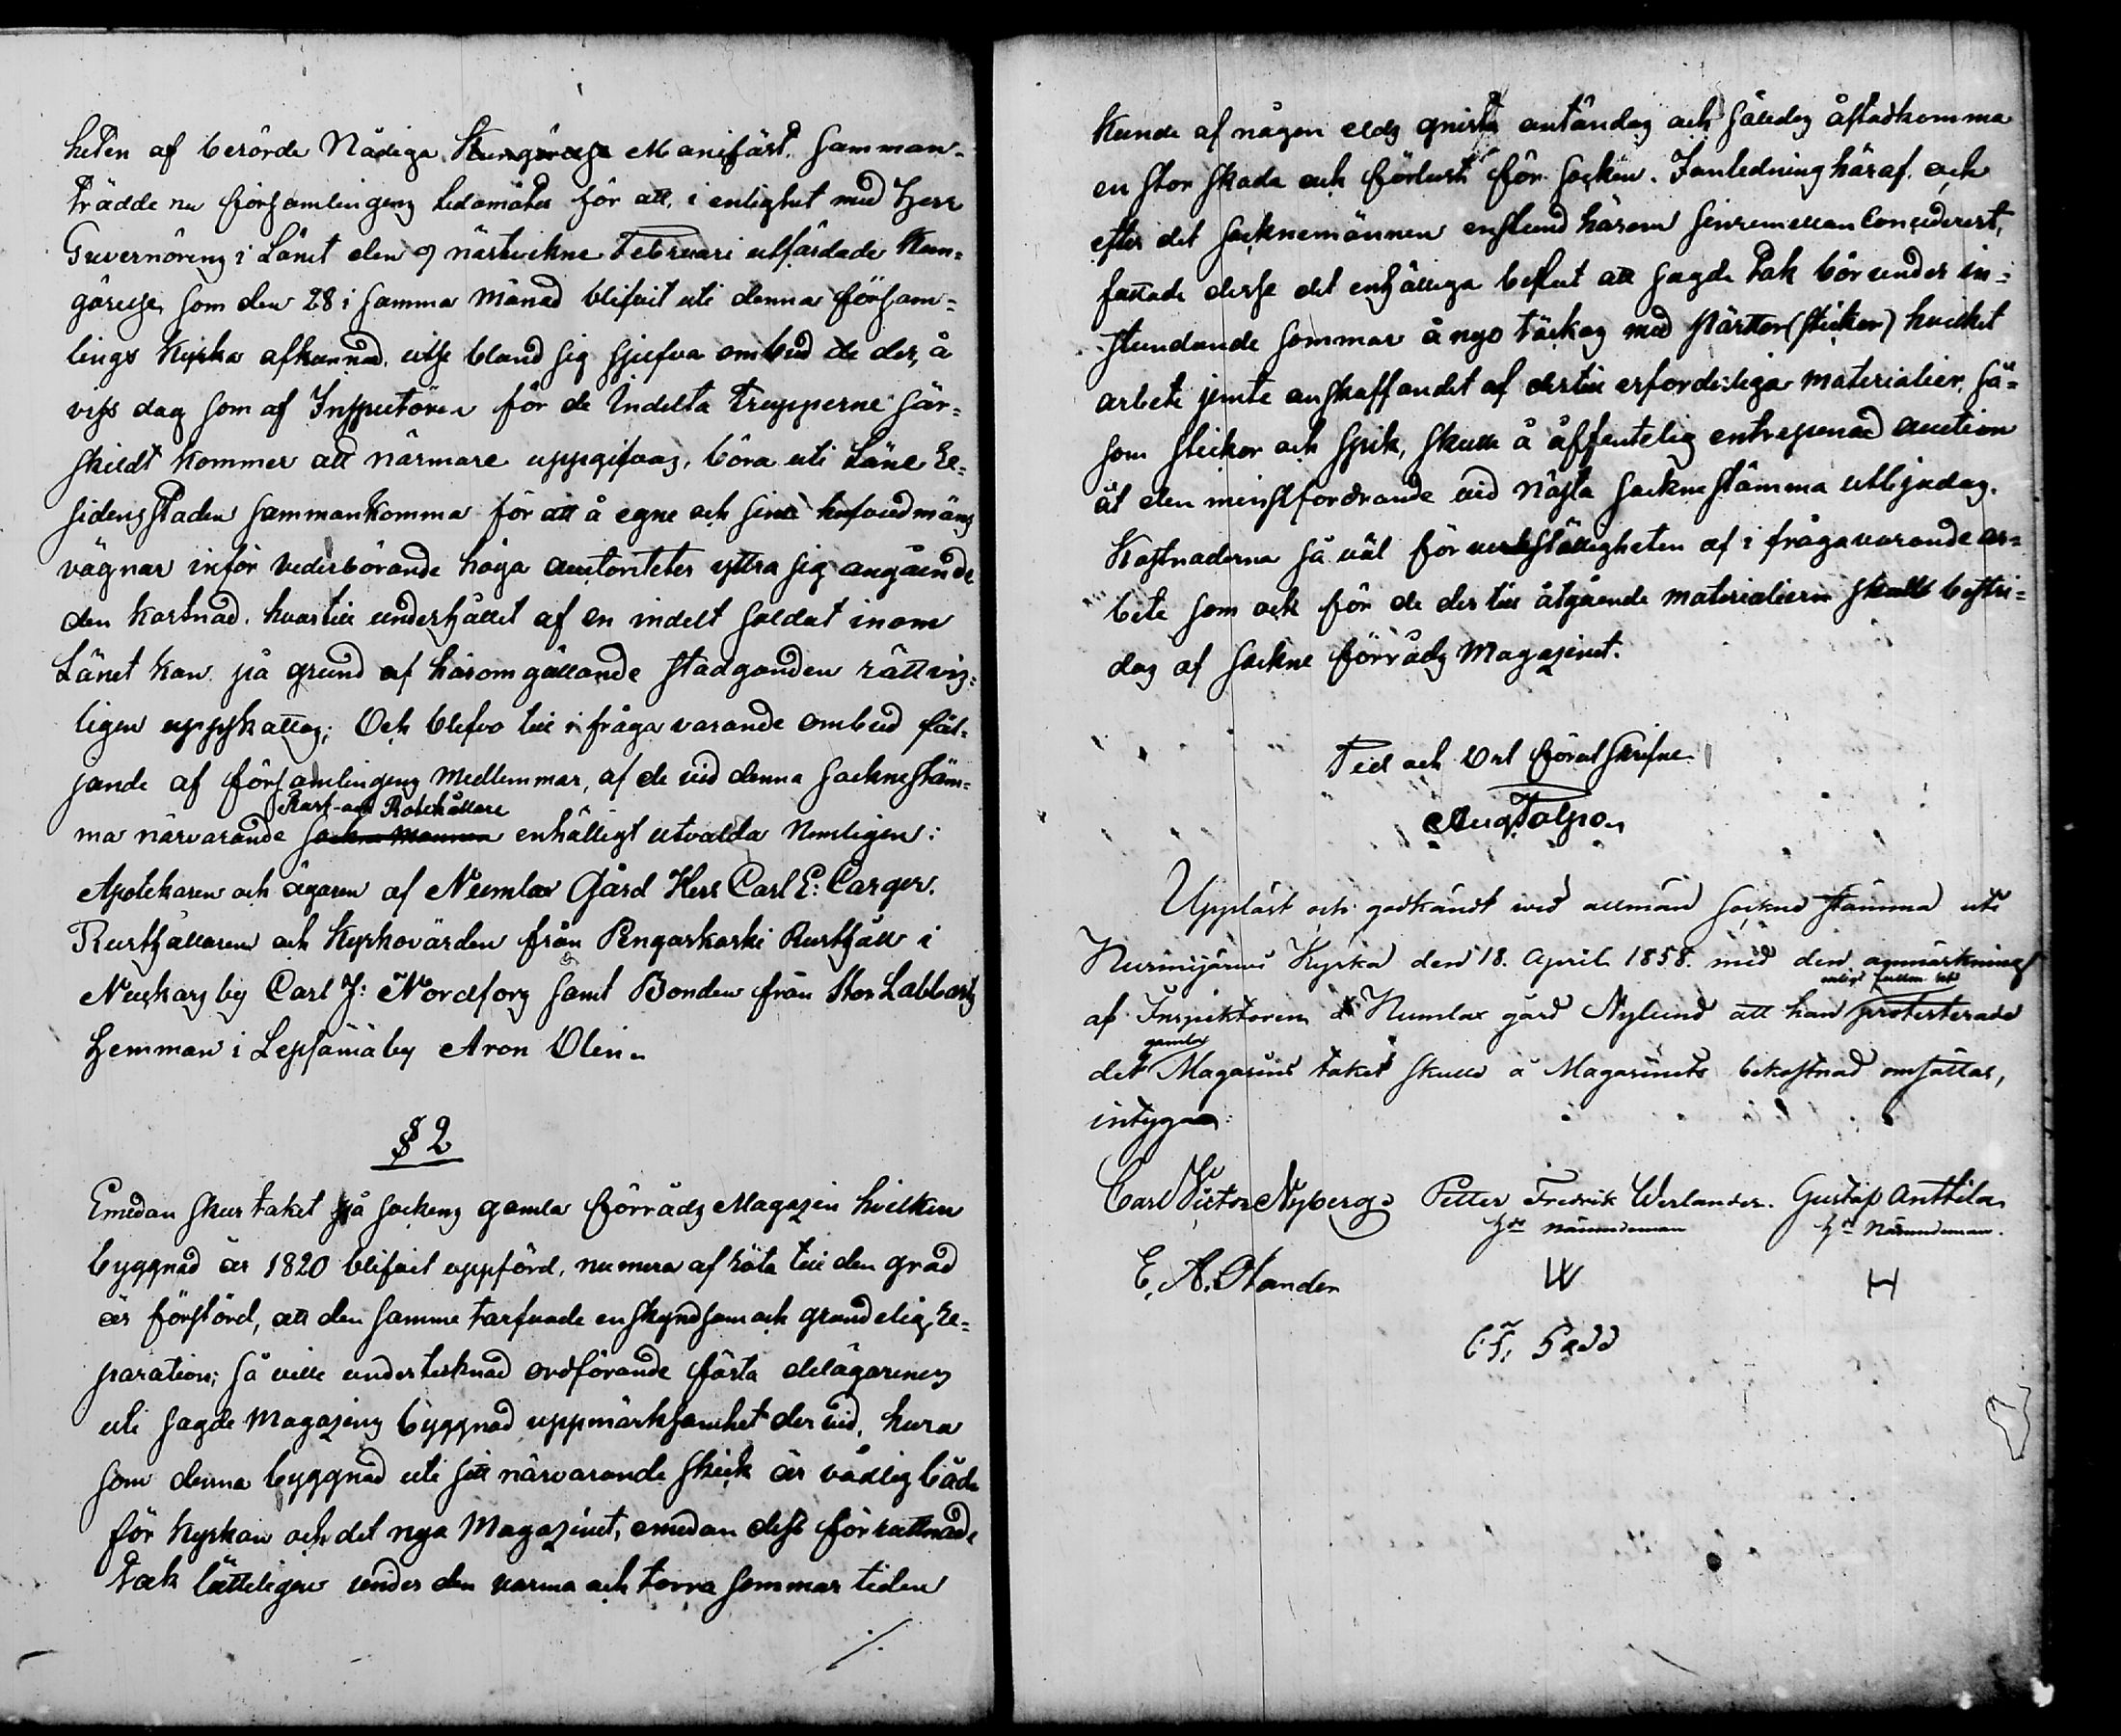 heten af berörde Nådiga Kungörelse Manifäst. samman-
trädde nu församlingens Ledamöter för att, i enlighet med Herr
Guvernörens i Länet den 9 nästvekne Februari utfärdade Kun-
görelse, som den 28 i samma månad blifvit uti denna försam-
lings Kyrka afkunnad, utse bland sig sjelfva ombud de der, å
viss dag som af Inspectören för de Indelta Trupperne sär-
skildt kommer att närmare uppgifvas, böra uti Läne Re-
sidensstaden sammankomma för att å egne och sina hufvudmäns
vägnar inför vederbörande höga auctoriteter yttra sig angående
den kostnad, hvartill underhållet af en indelt soldat inom
Länet kan på grund af härom gällande stadganden rättvis-
ligen uppskattas; Och blefvo till i fråga varande ombud föl-
jande af församlingens medlemmar, af de vid denna sockneståm-
Rust- och Rotehållare
ma närvarande Sockne Männen enhälligt utvalda nemligen:
Apotekaren och ägaren af Numlax Gård Herr Carl E: Carger.
Rusthållaren och Kyrkovärden från Pengarkoski Rusthåll i
Neukars by Carl J: Nordfors samt Bonden från Stor Labbarts
Hemman i Lepsämä by Aron Olin.
§ 2
Emedan skurtaket på Sockens gamla förråds Magazin hvilken
byggnad år 1820 blifvit uppförd, numera af röta till den grad
är förstörd, att den samme tarfvade en skyndsam och grundelig Re-
paration; så ville undertecknad ordförande fästa delägarenes
uti sagde Magazins byggnad uppmärksamhet der vid, huru
som denna byggnad uti sitt närvarande skick är vådlig både
för Kyrkan och det nya Magazinet, emedan dess förruttnade
tak lätteligen under den varma och torra sommar tiden
./.
Kunde af någon elds gnista antändas och således åstadkomma
en stor skada och förlust för Socken. I anledning häraf och
efter det socknemännen en stund härom sinsemellan Concidererat,
fattade desse det enhälliga beslut att sagde tak bör under in-
stundande sommar å nyo täckas med pärttor (stickor) hvilket
arbete jemte anskaffandet af dertill erforderliga materialier, så-
som stickor och spik, skulle å åffentelig entreprenad auction
åt den minstfordrande vid nästa Sockneståmma utbjudas.
Kostnaderna så väl för verkställigheten af i fråga varande ar-
bete som ock för de der till åtgående materialierna skulle bestri-
das af Sockne förråds Magazinet.
Tid och Ort föratskrifne
Aug Tolpo.
Uppläst och godkändt vid allmän Sockne stämma uti
Nurmijärvi Kyrka den 18. April 1858. med den anmärkning
af Inspektoren å Numlax gård Nylund att han protesterade
gamla
det Magasins taket skulle å Magasinets bekostnad omsättas,
intygar:
Carl Victor Nyberg. Petter Fredrik Werlander. Gustaf Anttila
nämndeman nämndeman.
E. A. Olander W H